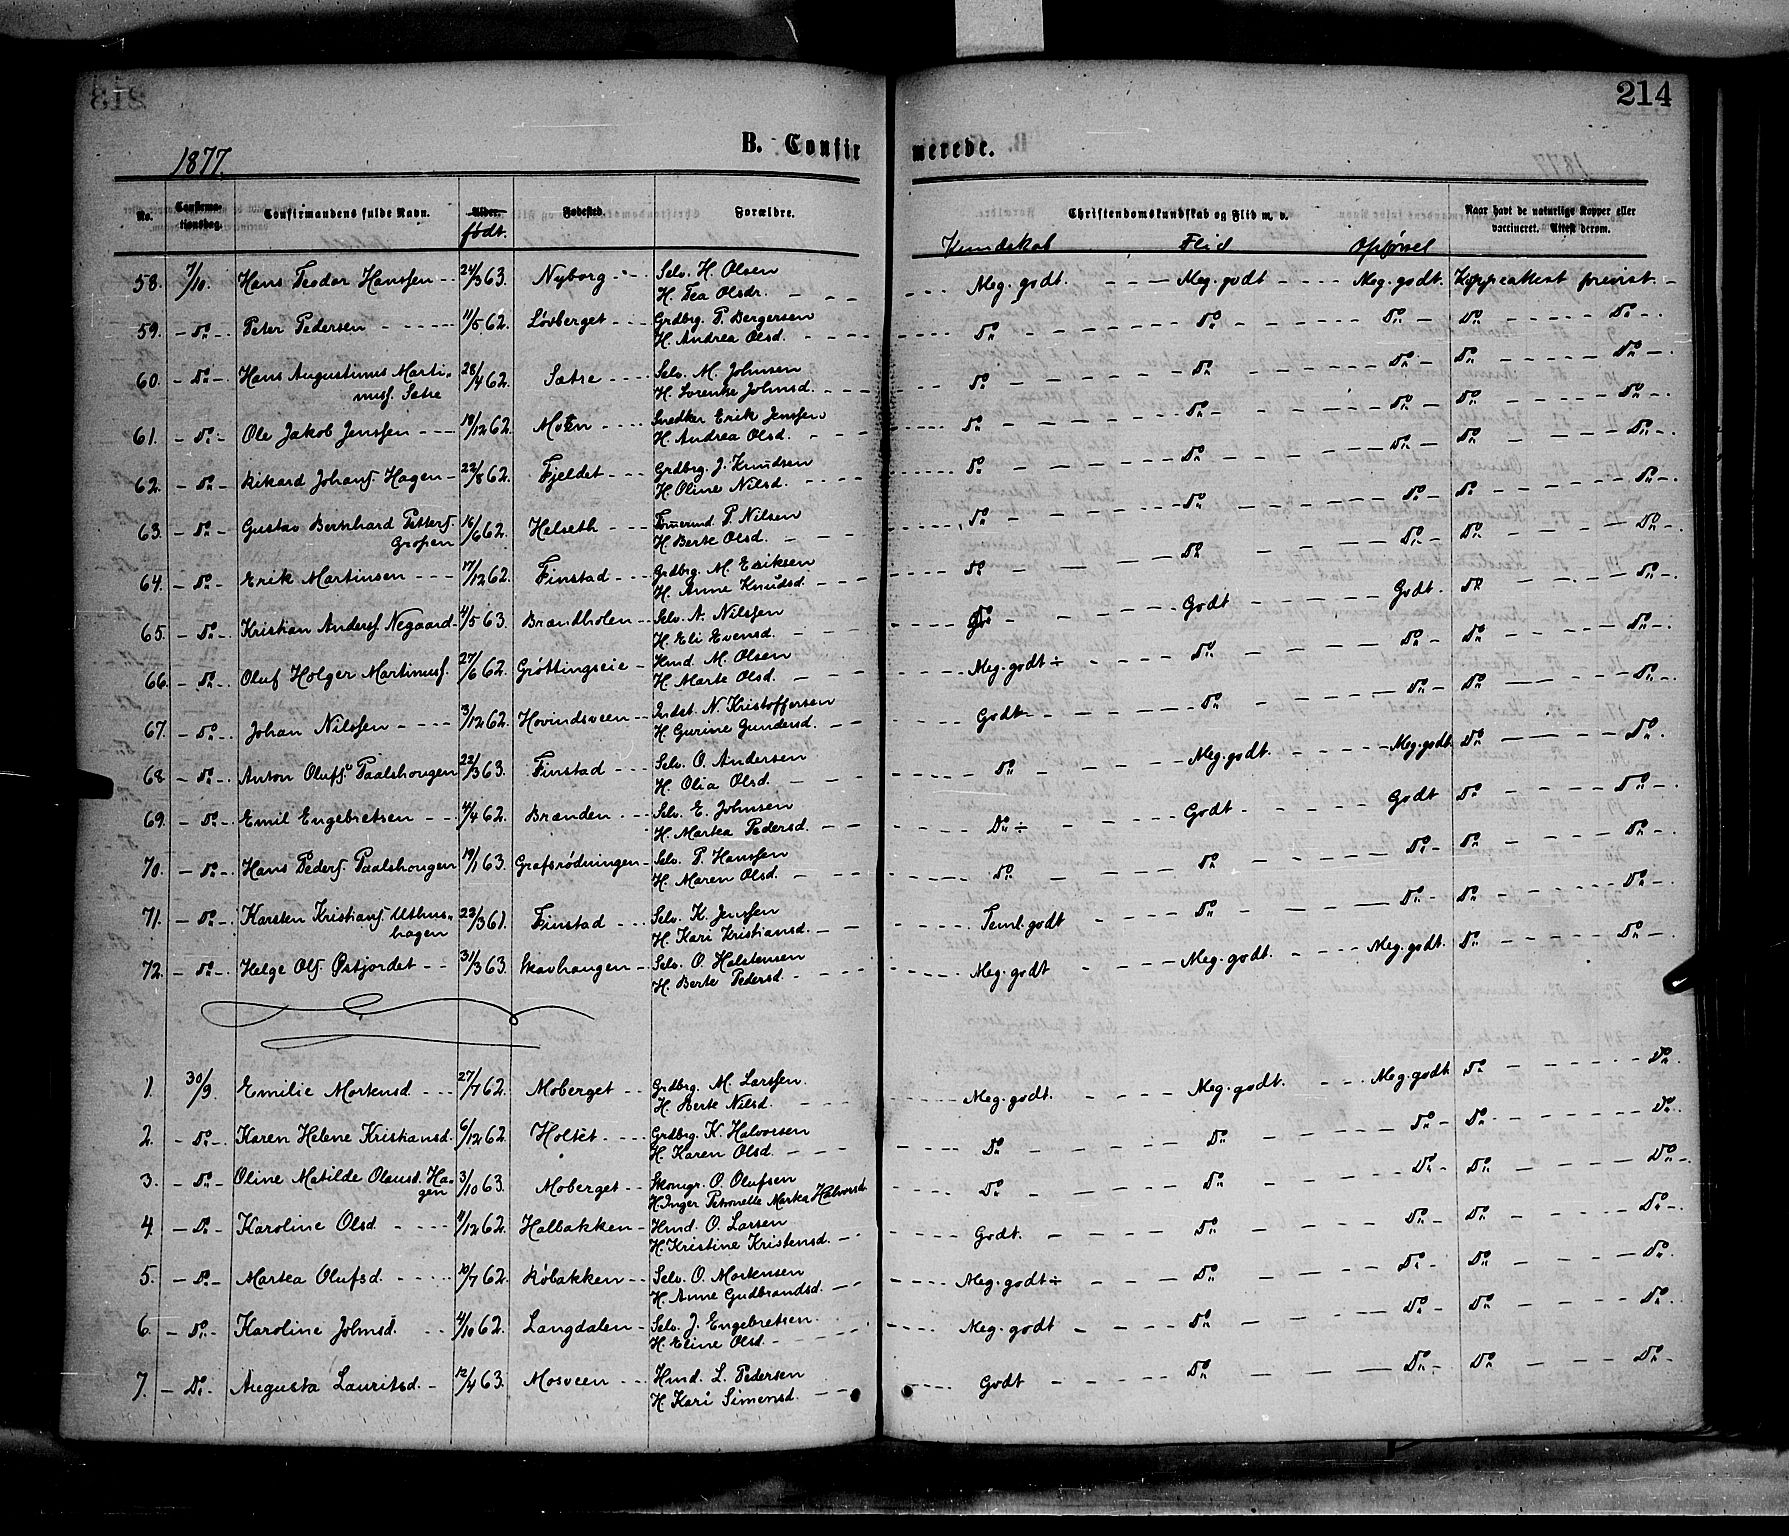 214
B. Confirmerede.
1877.
No. Confirmationsdag. Confirmandens fulde Navn. Alder. født. Fødested. Forældre. Christendomskundskab og Flid m. v. Naar havt de naturlige Kopper eller vaccineret. Attest derom.
Kundskab Flid Opførsel
58. 7/10. Hans Teodor Hanssen 24/3 63. Nyborg Selv. H. Olsen Meg. godt. Meg. godt Meg. godt. Koppeattest previst.
H. Tea Olsdr.
59. Do Peter Pedersen 11/5 62. Lovberget Grdbrg. P. Bergersen Do Do Do Do Do
H. Andrea Olsd.
60. Do Hans Augustinus Marti- 28/4 62. Sætre Selv. M. Johnsen Do Do Do Do Do
nuss. Sætre H. Lorentse Johnsd.
61. Do Ole Jakob Jenssen 10/12 62. Moen Snedker Erik Jenssen Do Do Do Do Do
H. Andrea Olsd.
62. Do Rikard Johans. Hagen 22/8 62. Fjeldet Grdbrg. J. Knudsen Do Do Do Do Do
H. Oline Nilsd.
63. Do Gustav Bernhard Petters. 16/6 62. Helseth P. Nilsen Do Do Do Do Do
Gropen H. Berte Olsd.
64. Do Erik Martinsen 17/12 62. Finstad Grdbrg. M. Eriksen Do Do Do Do Do
H. Anne Knudsd.
65. Do Kristian Anders. Negaard 4/5 63. Brændholen Selv. A. Nilssen Do Godt Godt. Do Do
H. Eli Evensd.
66. Do Oluf Holger Martinuss. 27/6 62. Grøttingseie Hmd. M. Olsen Meg. godt ÷ Do Do Do Do
H. Marte Olsd.
67. Do Johan Nilssen 3/12 62. Hovindsveen Indst. N. Kristoffersen Godt Do Do Do Do
H. Gurine Gundersd.
68. Do Anton Olufs. Paalshougen 22/3 63. Finstad Selv. O. Andersen Do Meg. godt. Meg. godt Do Do
H. Olia Olsd.
69. Do Emil Engebretsen 4/4 62. Brænden Selv. E. Johnsen Do ÷ Godt Godt Do Do
H. Martea Pedersd.
70. Do Hans Peders. Paalshougen 19/1 63. Grafsrødningen Selv. P. Hanssen Do Do Do Do Do
H. Maren Olsd.
71. Do Karsten Kristians. Uthus- 23/3 61. Finstad Selv. K. Jenssen Teml. godt Do Do Do Do
hagen H. Kari Kristiansd.
72. Do Helge Ols. Østjordet 31/3 63. Skavhaugen Selv. O. Halstensen Meg. godt Meg. godt. Meg. godt. Do Do
H. Berte Pedersd.
1. 30/9. Emilie Mortensd. 27/7 62. Moberget Grdbrg. M. Larssen. Meg. godt. Meg. godt. Meg. godt Do Do
H. Berte Nilsd.
2. Do Karen Helene Kristiansd. 6/12 62. Holset Grdbrg. K. Halvorsen Do Do Do Do Do
H. Karen Olsd.
3. Do Oline Matilde Olausd. Ha- 3/10 63. Moberget Skomgr. O. Olufsen Do Do Do Do Do
gen H. Inger Petronelle Martea Halvorsd.
4. Do Karoline Olsd. 11/12 62. Halbakken Hmd. O. Larsen Godt. Do Do Do Do
H. Kristine Kristensd.
5. Do Martea Olufsd. 10/7 62. Røbakken Selv. O. Mortensen Meg. godt ÷ Do Do Do Do
H. Anne Gudbrandsd.
6. Do Karoline Johnsd. 4/10 62. Langdalen Selv. J. Engebretsen. Meg. godt Do Do Do Do
H. Eline Olsd.
7. Do Augusta Lauritsd. 12/4 63. Mosveen Hmd. L. Pedersen Godt Do Do Do Do
H. Kari Simensd.